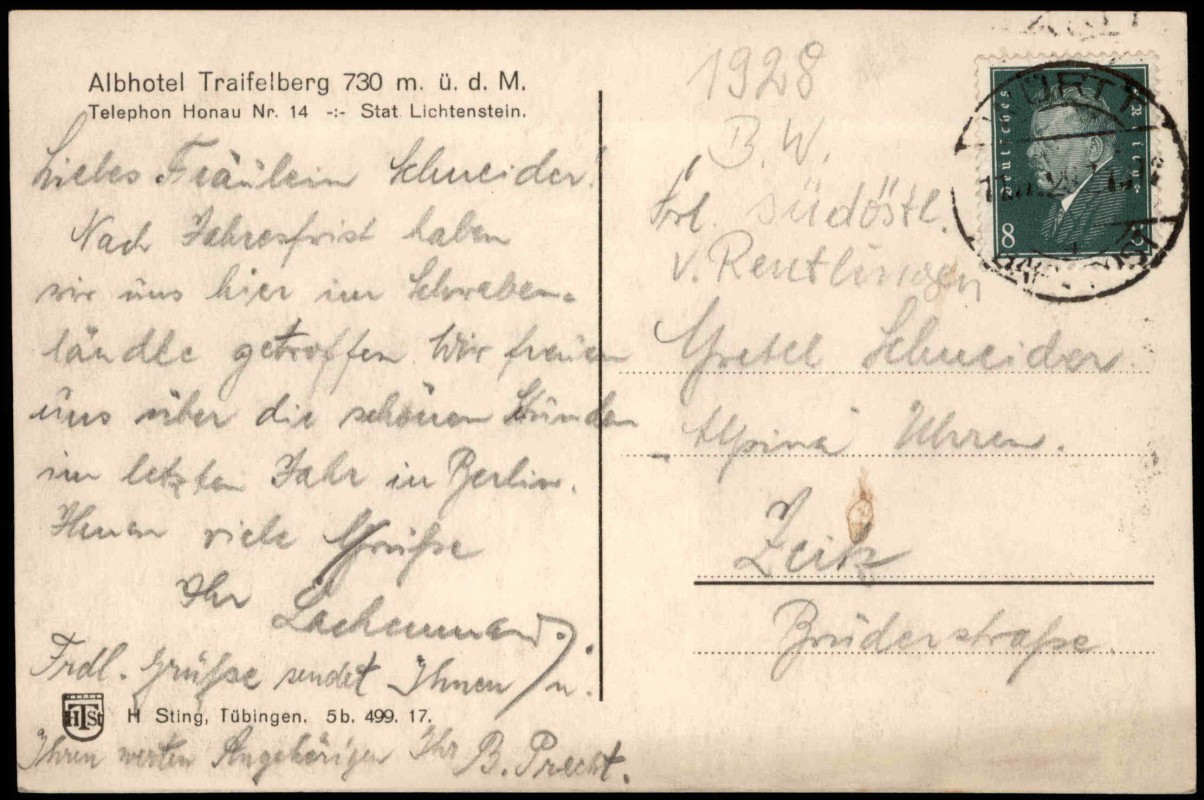 Albhotel Traifelberg 730 m. ü. d. M.
Telephon Honau Nr. 14 -:- Stat. Lichtenstein.
Liebes Fräulein Schneider!
Nach Jahresfrist haben
wir uns hier im Schwaben-
ländle getroffen. Wir freuen
uns über die schönen Stunden
im letzten Jahr in Berlin.
Ihnen viele Grüße
Ihr Lachenmann.
Frdl. Grüße sendet Ihnen u.
H Sting, Tübingen. 5b. 499. 17.
HTSt
Ihren werten Angehörigen Ihr B. Precht.
1928
B.W.
Frl. südöstl.
v. Reutlingen
Gretel Schneider.
Alpina Uhren.
Zeitz
Brüderstraße.
Deutsches Reich
8